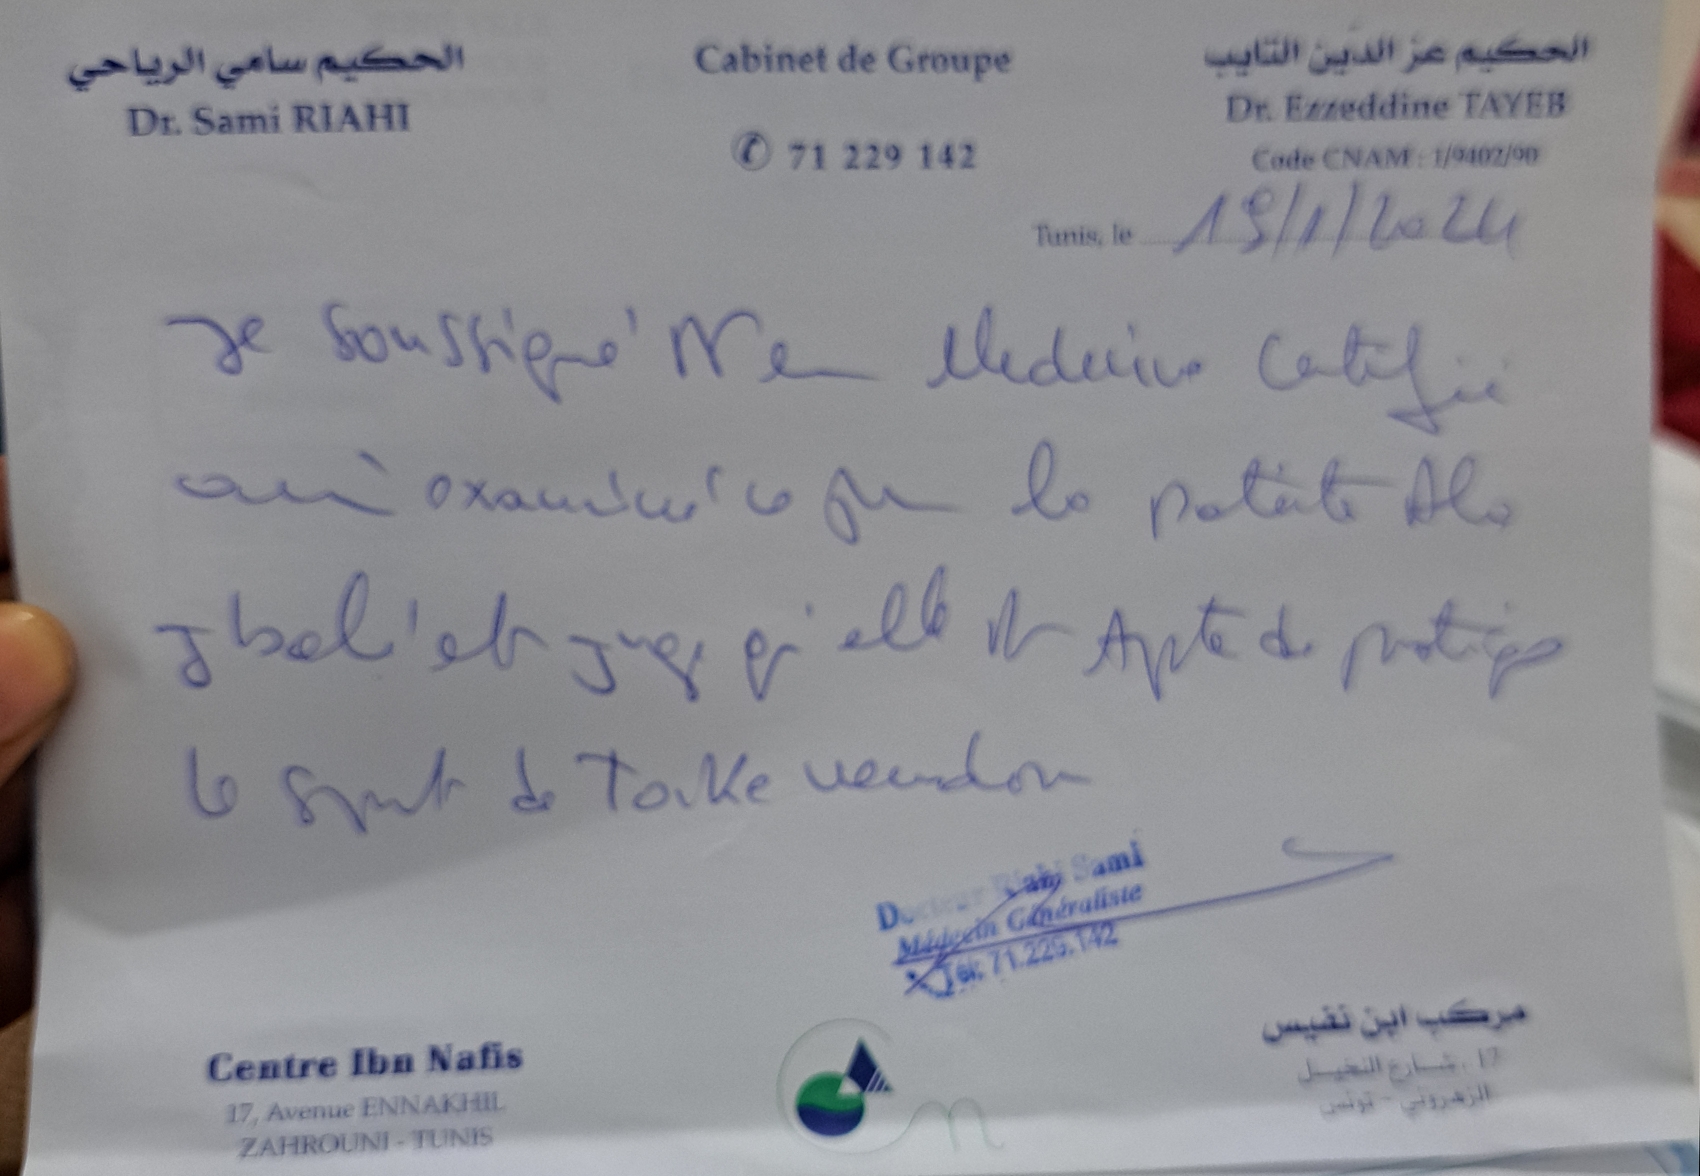 الحكيم سامي الرياحي
Dr. Sami RIAHI
Cabinet de Groupe
✆ 71 229 142
الحكيم عز الدين التايب
Dr. Ezzeddine TAYEB
Code CNAM : 1/9402/90
Tunis, le 19/1/2024
Je soussigné Dr en Medecine Certifie
avoir examiné ce jour la patiente Ala
Jbeli et juge qu'elle est Apte de pratiquer
le sport de Taekwendon
Docteur Riahi Sami
Médecin Généraliste
Tél: 71.229.142
Centre Ibn Nafis
17, Avenue ENNAKHIL
ZAHROUNI - TUNIS
مركب ابن نفيس
17، شارع النخيل
الزهروني - تونس